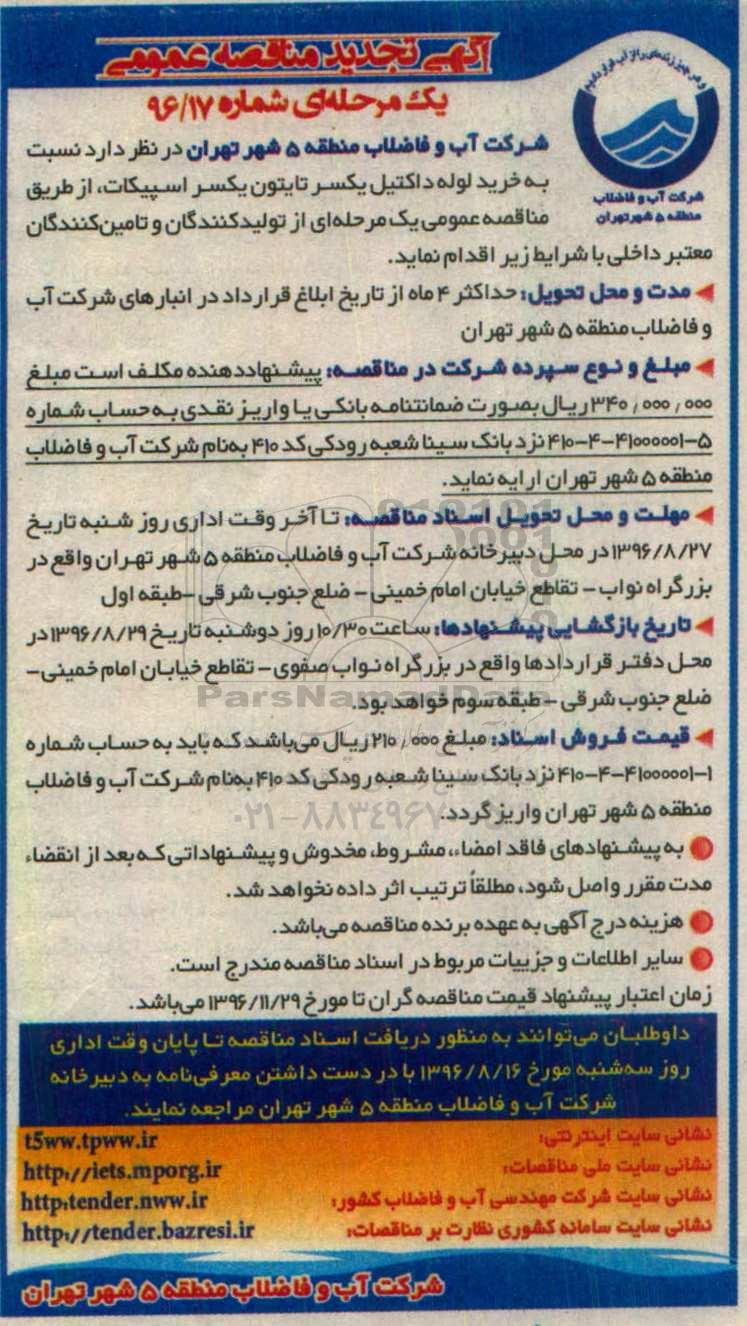 آگهی تجدید مناقصه عمومی
یک مرحله‌ای شماره ۹۶/۱۷
و من چیز زنده‌ای را از آب قرار دادیم
شرکت آب و فاضلاب
منطقه ۵ شهر تهران
شرکت آب و فاضلاب منطقه ۵ شهر تهران در نظر دارد نسبت
به خرید لوله داکتیل یکسر تایتون یکسر اسپیکات، از طریق
مناقصه عمومی یک مرحله‌ای از تولیدکنندگان و تامین‌کنندگان
معتبر داخلی با شرایط زیر اقدام نماید.
مدت و محل تحویل: حداکثر ۴ ماه از تاریخ ابلاغ قرارداد در انبارهای شرکت آب
و فاضلاب منطقه ۵ شهر تهران
مبلغ و نوع سپرده شرکت در مناقصه: پیشنهاددهنده مکلف است مبلغ
۳۴۰٫۰۰۰٫۰۰۰ ریال بصورت ضمانتنامه بانکی یا واریز نقدی به حساب شماره
۴۱۰-۴-۴۱۰۰۰۰۰۱-۵ نزد بانک سینا شعبه رودکی کد ۴۱۰ به‌نام شرکت آب و فاضلاب
منطقه ۵ شهر تهران ارایه نماید.
مهلت و محل تحویل اسناد مناقصه: تا آخر وقت اداری روز شنبه تاریخ
۱۳۹۶/۸/۲۷ در محل دبیرخانه شرکت آب و فاضلاب منطقه ۵ شهر تهران واقع در
بزرگراه نواب - تقاطع خیابان امام خمینی - ضلع جنوب شرقی -طبقه اول
تاریخ بازگشایی پیشنهادها: ساعت ۱۰/۳۰ روز دوشنبه تاریخ ۱۳۹۶/۸/۲۹ در
محل دفتر قراردادها واقع در بزرگراه نواب صفوی - تقاطع خیابان امام خمینی-
ضلع جنوب شرقی - طبقه سوم خواهد بود.
ParsNamadData
قیمت فروش اسناد: مبلغ ۲۱۰٫۰۰۰ ریال می‌باشد که باید به حساب شماره
۴۱۰-۴-۴۱۰۰۰۰۰۱-۱ نزد بانک سینا شعبه رودکی کد ۴۱۰ به‌نام شرکت آب و فاضلاب
منطقه ۵ شهر تهران واریز گردد.
به پیشنهادهای فاقد امضاء، مشروط، مخدوش و پیشنهاداتی که بعد از انقضاء
مدت مقرر واصل شود، مطلقاً ترتیب اثر داده نخواهد شد.
هزینه درج آگهی به عهده برنده مناقصه می‌باشد.
سایر اطلاعات و جزییات مربوط در اسناد مناقصه مندرج است.
زمان اعتبار پیشنهاد قیمت مناقصه گران تا مورخ ۱۳۹۶/۱۱/۲۹ می‌باشد.
داوطلبان می‌توانند به منظور دریافت اسناد مناقصه تا پایان وقت اداری
روز سه‌شنبه مورخ ۱۳۹۶/۸/۱۶ با در دست داشتن معرفی‌نامه به دبیرخانه
شرکت آب و فاضلاب منطقه ۵ شهر تهران مراجعه نمایند.
نشانی سایت اینترنتی: t5ww.tpww.ir
نشانی سایت ملی مناقصات: http://iets.mporg.ir
نشانی سایت شرکت مهندسی آب و فاضلاب کشور: http:tender.nww.ir
نشانی سایت سامانه کشوری نظارت بر مناقصات: http://tender.bazresi.ir
شرکت آب و فاضلاب منطقه ۵ شهر تهران